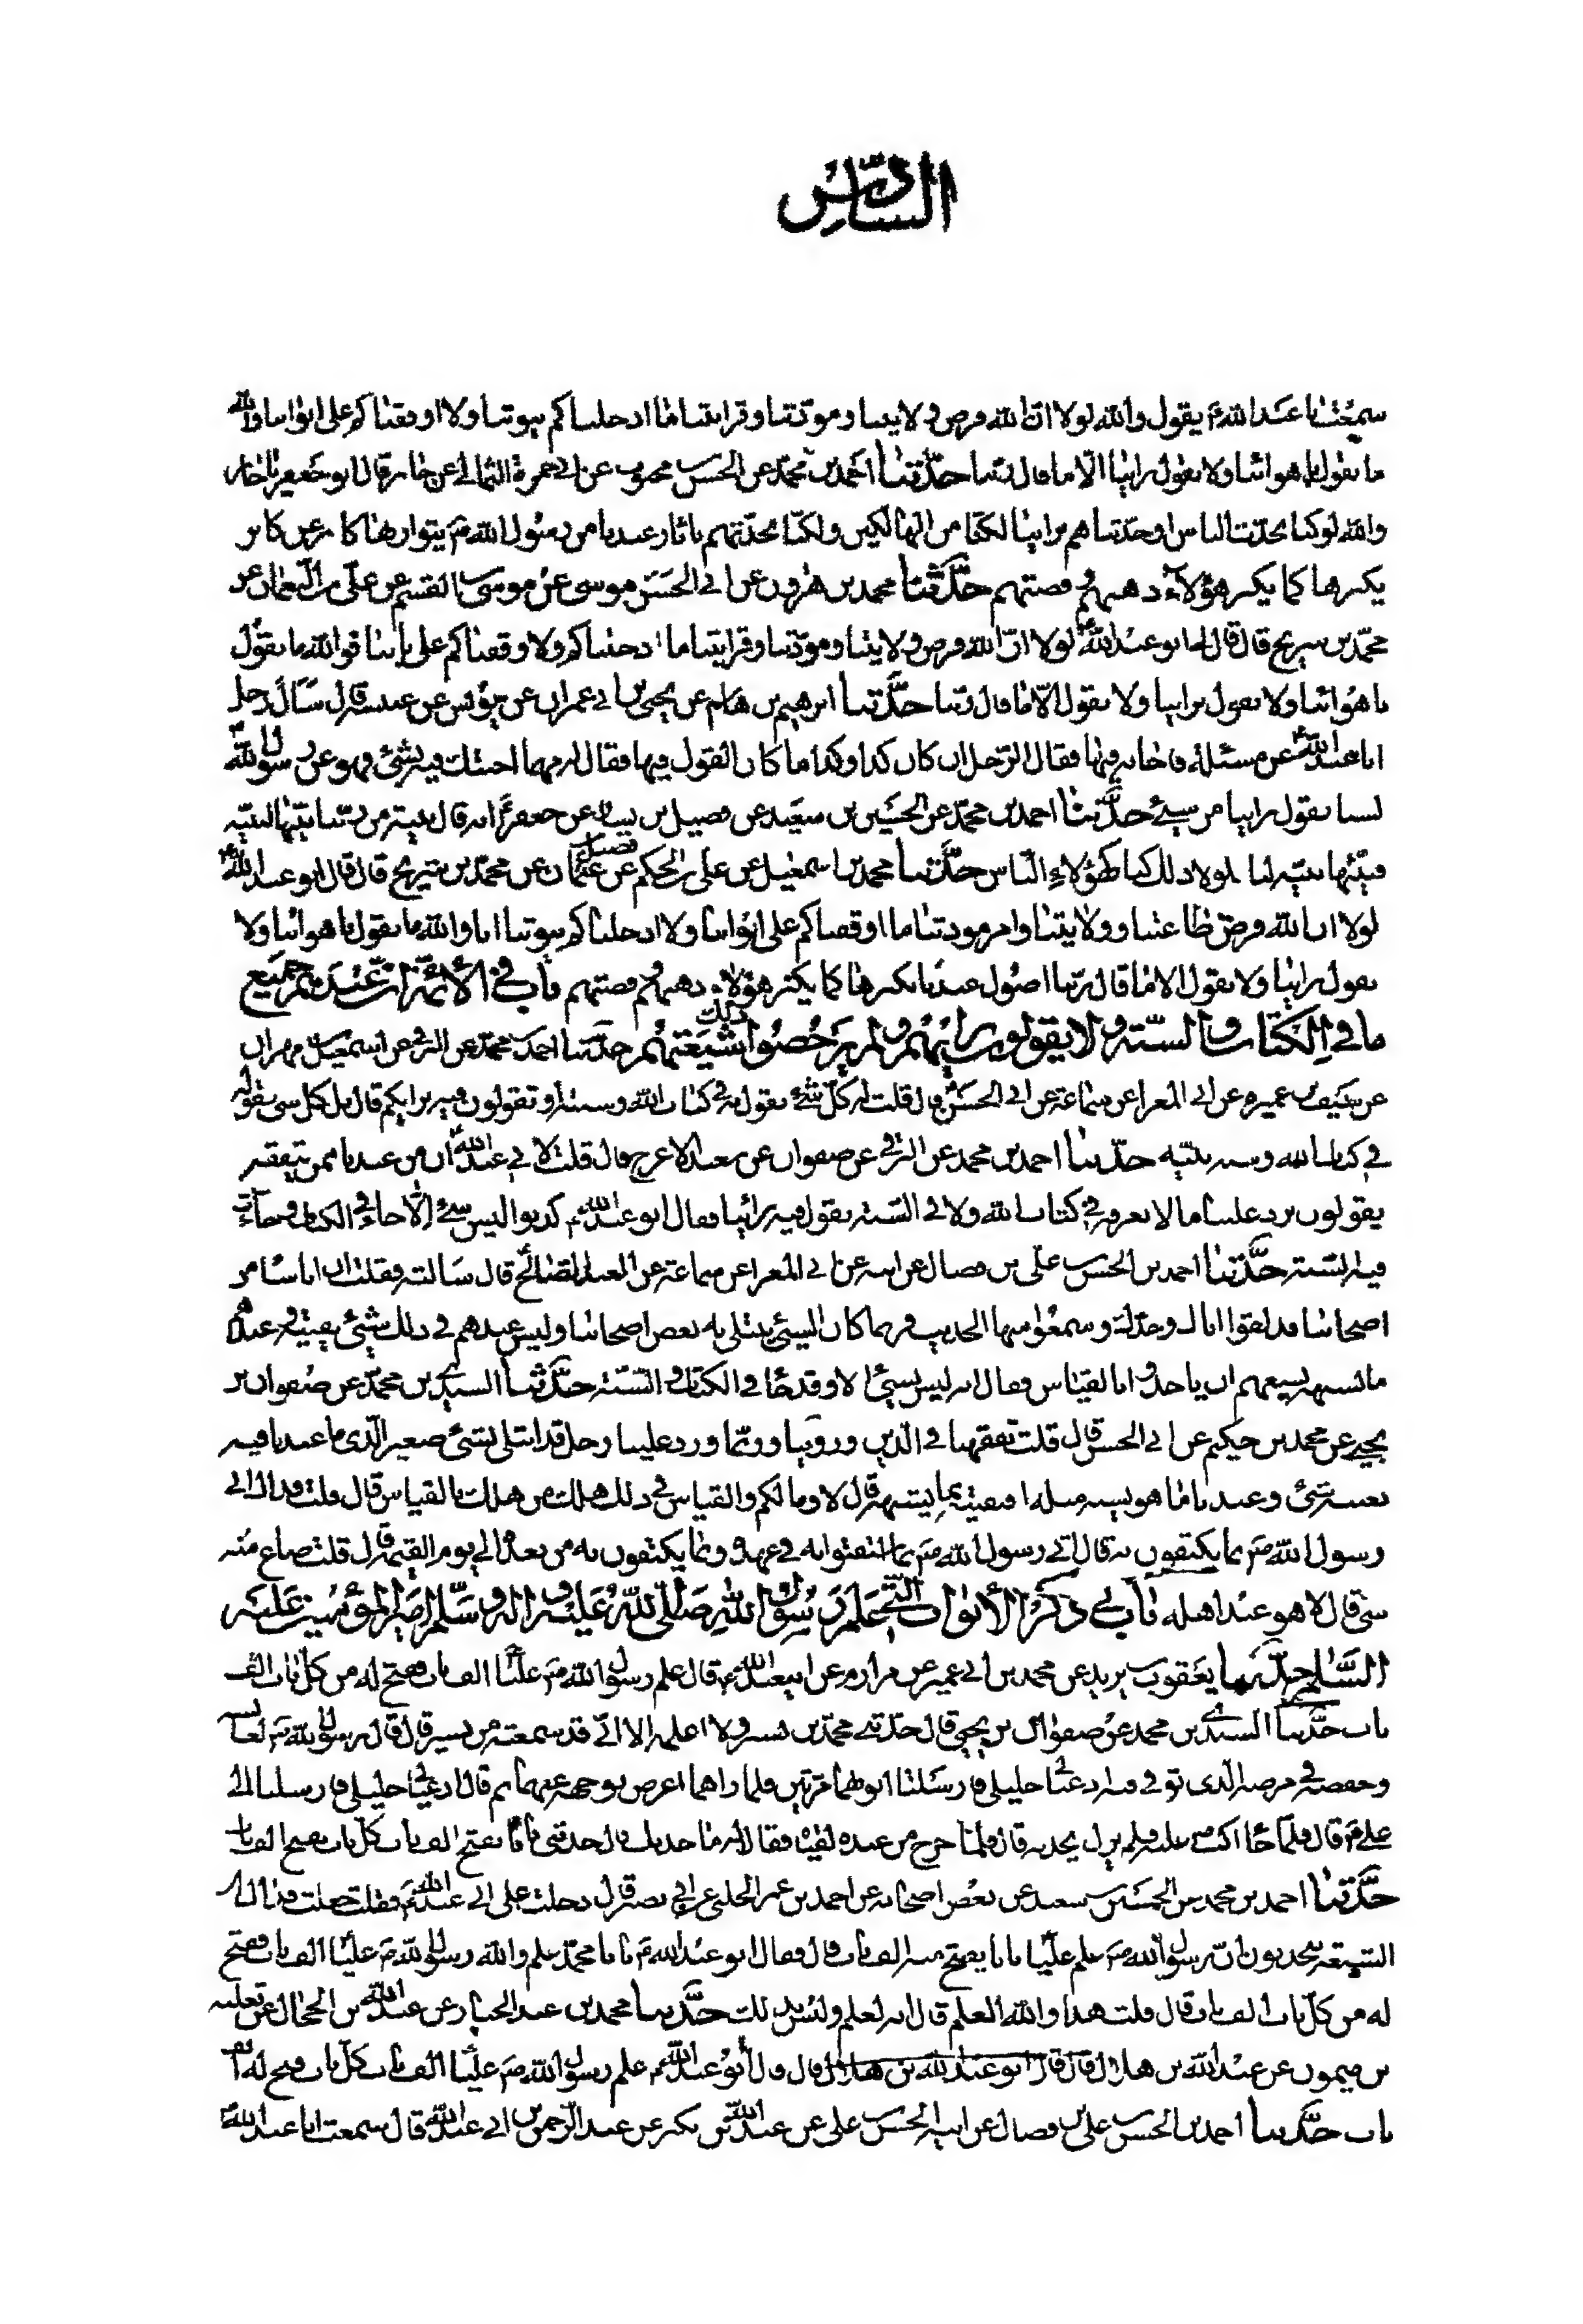 السادس
سمعت ابا عبد الله ع يقول والله لولا ان الله فرض ولايتنا ومودتنا وقرابتنا ما ادخلناكم بيوتنا ولا اوقفناكم على ابوابنا والله
ما نقول باهوائنا ولا نقول براينا الا ما قال ربنا حدثنا احمد بن محمد عن الحسن بن محبوب عن ابي حمزة الثمالي عن جابر قال ابو جعفر يا جابر
والله لو كنا نحدث الناس او حدثناهم براينا لكنا من الهالكين ولكنا نحدثهم باثار عندنا من رسول الله ص يتوارثها كابر عن كابر
نكنزها كما يكنز هؤلاء ذهبهم وفضتهم حدثنا محمد بن هرون عن ابي الحسن موسى عن موسى بن القسم عن علي بن النعمان عن
محمد بن شريح قال قال لي ابو عبد الله ع لولا ان الله فرض ولايتنا ومودتنا وقرابتنا ما ادخلناكم ولا وقفناكم على بابنا فوالله ما نقول
باهوائنا ولا نقول براينا ولا نقول الا ما قال ربنا حدثنا ابرهيم بن هاشم عن يحيى بن ابي عمران عن يونس عن عنبسة قال سال رجل
ابا عبد الله ع عن مسئلة فاجابه فيها فقال الرجل ان كان كذا وكذا ما كان القول فيها فقال له مهما اجبتك فيه بشئ فهو عن رسول الله
لسنا نقول براينا من شئ حدثنا احمد بن محمد عن الحسين بن سعيد عن فضيل بن يسار عن جعفر ع انه قال بينة من ربنا بينها لنبيه
فبينها نبيه لنا فلولا ذلك كنا كهؤلاء الناس حدثنا محمد بن اسمعيل عن علي بن الحكم عن فضيل بن عثمان عن محمد بن شريح قال قال ابو عبد الله
لولا ان الله فرض طاعتنا وولايتنا وامر مودتنا ما اوقفناكم على ابوابنا ولا ادخلناكم بيوتنا انا والله ما نقول باهوائنا ولا
نقول براينا ولا نقول الا ما قال ربنا اصول عندنا نكنزها كما يكنز هؤلاء ذهبهم وفضتهم باب في الائمة ان عندهم جميع
ما في الكتاب والسنة ولا يقولون برايهم ولم يرخصوا ذلك شيعتهم حدثنا احمد بن محمد عن البرقي عن اسمعيل بن مهران
عن سيف بن عميرة عن ابي المغرا عن سماعة عن ابي الحسن ع قال قلت له كل شئ نقول به في كتاب الله وسنته او تقولون فيه برايكم قال بل كل شئ نقوله
في كتاب الله وسنة نبيه حدثنا احمد بن محمد عن البرقي عن صفوان عن سعيد الاعرج قال قلت لابي عبد الله ع ان من عندنا ممن يتفقه
يقولون يرد علينا ما لا نعرفه في كتاب الله ولا في السنة نقول فيه براينا فقال ابو عبد الله ع كذبوا ليس شئ الا جاء في الكتاب وجاءت
فيه السنة حدثنا احمد بن الحسن بن علي بن فضال عن ابيه عن ابي المغرا عن سماعة عن العبد الصالح قال سالته فقلت ان اناسا من
اصحابنا قد لقوا اباك وجدك وسمعوا منهما الحديث فربما كان الشئ يبتلى به بعض اصحابنا وليس عندهم في ذلك شئ يفتيه وعندهم
ما يشبهه يسعهم ان ياخذوا بالقياس فقال انه ليس بشئ الا وقد جا في الكتاب والسنة حدثنا السندي بن محمد عن صفوان بن
يحيى عن محمد بن حكيم عن ابي الحسن قال قلت تفقهنا في الدين وروينا وربما ورد علينا رجل قد ابتلى بشئ صغير الذي ما عندنا فيه
بعينه شئ وعندنا ما هو يشبه مثله افنفتيه بما يشبهه قال لا وما لكم والقياس في ذلك هلك من هلك بالقياس قال قلت جعلت فداك اتى
رسول الله ص بما يكتفون به قال اتى رسول الله ص بما استغنوا به في عهده وبما يكتفون به من بعده الى يوم القيمة قال قلت ضاع منه
شئ قال لا هو عند اهله باب في ذكر الابواب التي علم رسول الله صلى الله عليه واله وسلم امير المؤمنين عليه
السلام حدثنا يعقوب بن يزيد عن محمد بن ابي عمير عن مرازم عن ابي عبد الله ع قال علم رسول الله ص عليا الف باب يفتح له من كل باب الف
باب حدثنا السندي بن محمد عن صفوان بن يحيى قال حدثني محمد بن بشير ولا اعلمه الا اني قد سمعته من بشير قال قال رسول الله ص لعايشة
وحفصة في مرضه الذي توفي فيه ادعيا لي خليلي فارسلتا ابويهما مرتين فلما راهما اعرض بوجهه عنهما ثم قال ادعيا لي خليلي فارسلتا الى
علي ع قال فلما جا اكب عليه فلم يزل يحدثه قال فلما خرج من عنده لقياه فقالا له ما حدثك قال حدثني بابا يفتح الف باب كل باب يفتح الف باب
حدثنا احمد بن محمد عن الحسين بن سعيد عن بعض اصحابه عن احمد بن عمر الحلبي عن ابي بصير قال دخلت على ابي عبد الله ع فقلت جعلت فداك ان
الشيعة يتحدثون ان رسول الله ص علم عليا بابا يفتح منه الف باب قال فقال ابو عبد الله ع يا با محمد علم والله رسول الله ص عليا الف باب يفتح
له من كل باب الف باب قال قلت هذا والله العلم قال انه لعلم وليس بذلك حدثنا محمد بن عبد الجبار عن عبد الله بن الحجال عن ثعلبة
بن ميمون عن عبد الله بن هلال قال قال ابو عبد الله بن هلال قال قال ابو عبد الله ع علم رسول الله ص عليا الف باب كل باب فتح له الف
باب حدثنا احمد بن الحسن بن علي بن فضال عن ابيه الحسن بن علي عن عبد الله بن بكير عن عبد الرحمن بن ابي عبد الله قال سمعت ابا عبد الله ع